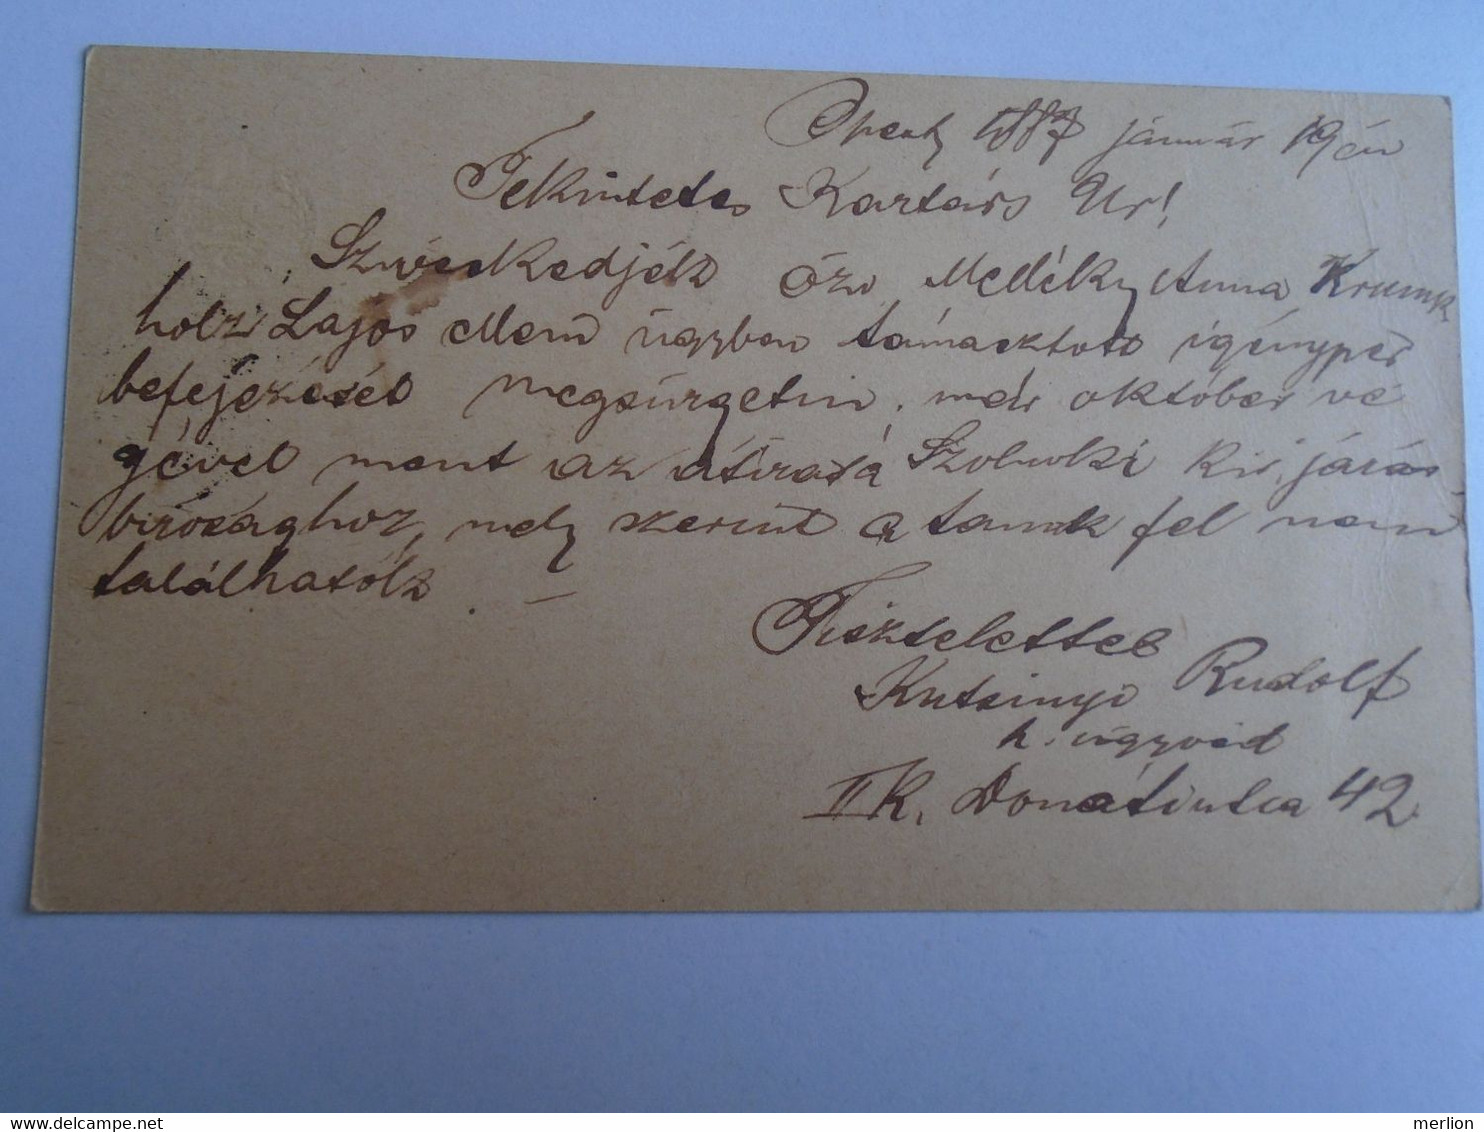 1887 január 19én
Tekintetes Kartárs Úr!
Sziveskedjék özv Medléky Anna Krumk
holz Lajos elleni ügyben támasztott igényper
befejezését megsürgetni, már október vé
gével ment az átirata Szolnoki kir. járás
birósághoz, mely szerint a tanuk fel nem
találhatók. —
Tisztelettel
Kutsinyi Rudolf
h. ügyvéd
II k. Donáti utca 42
merlion